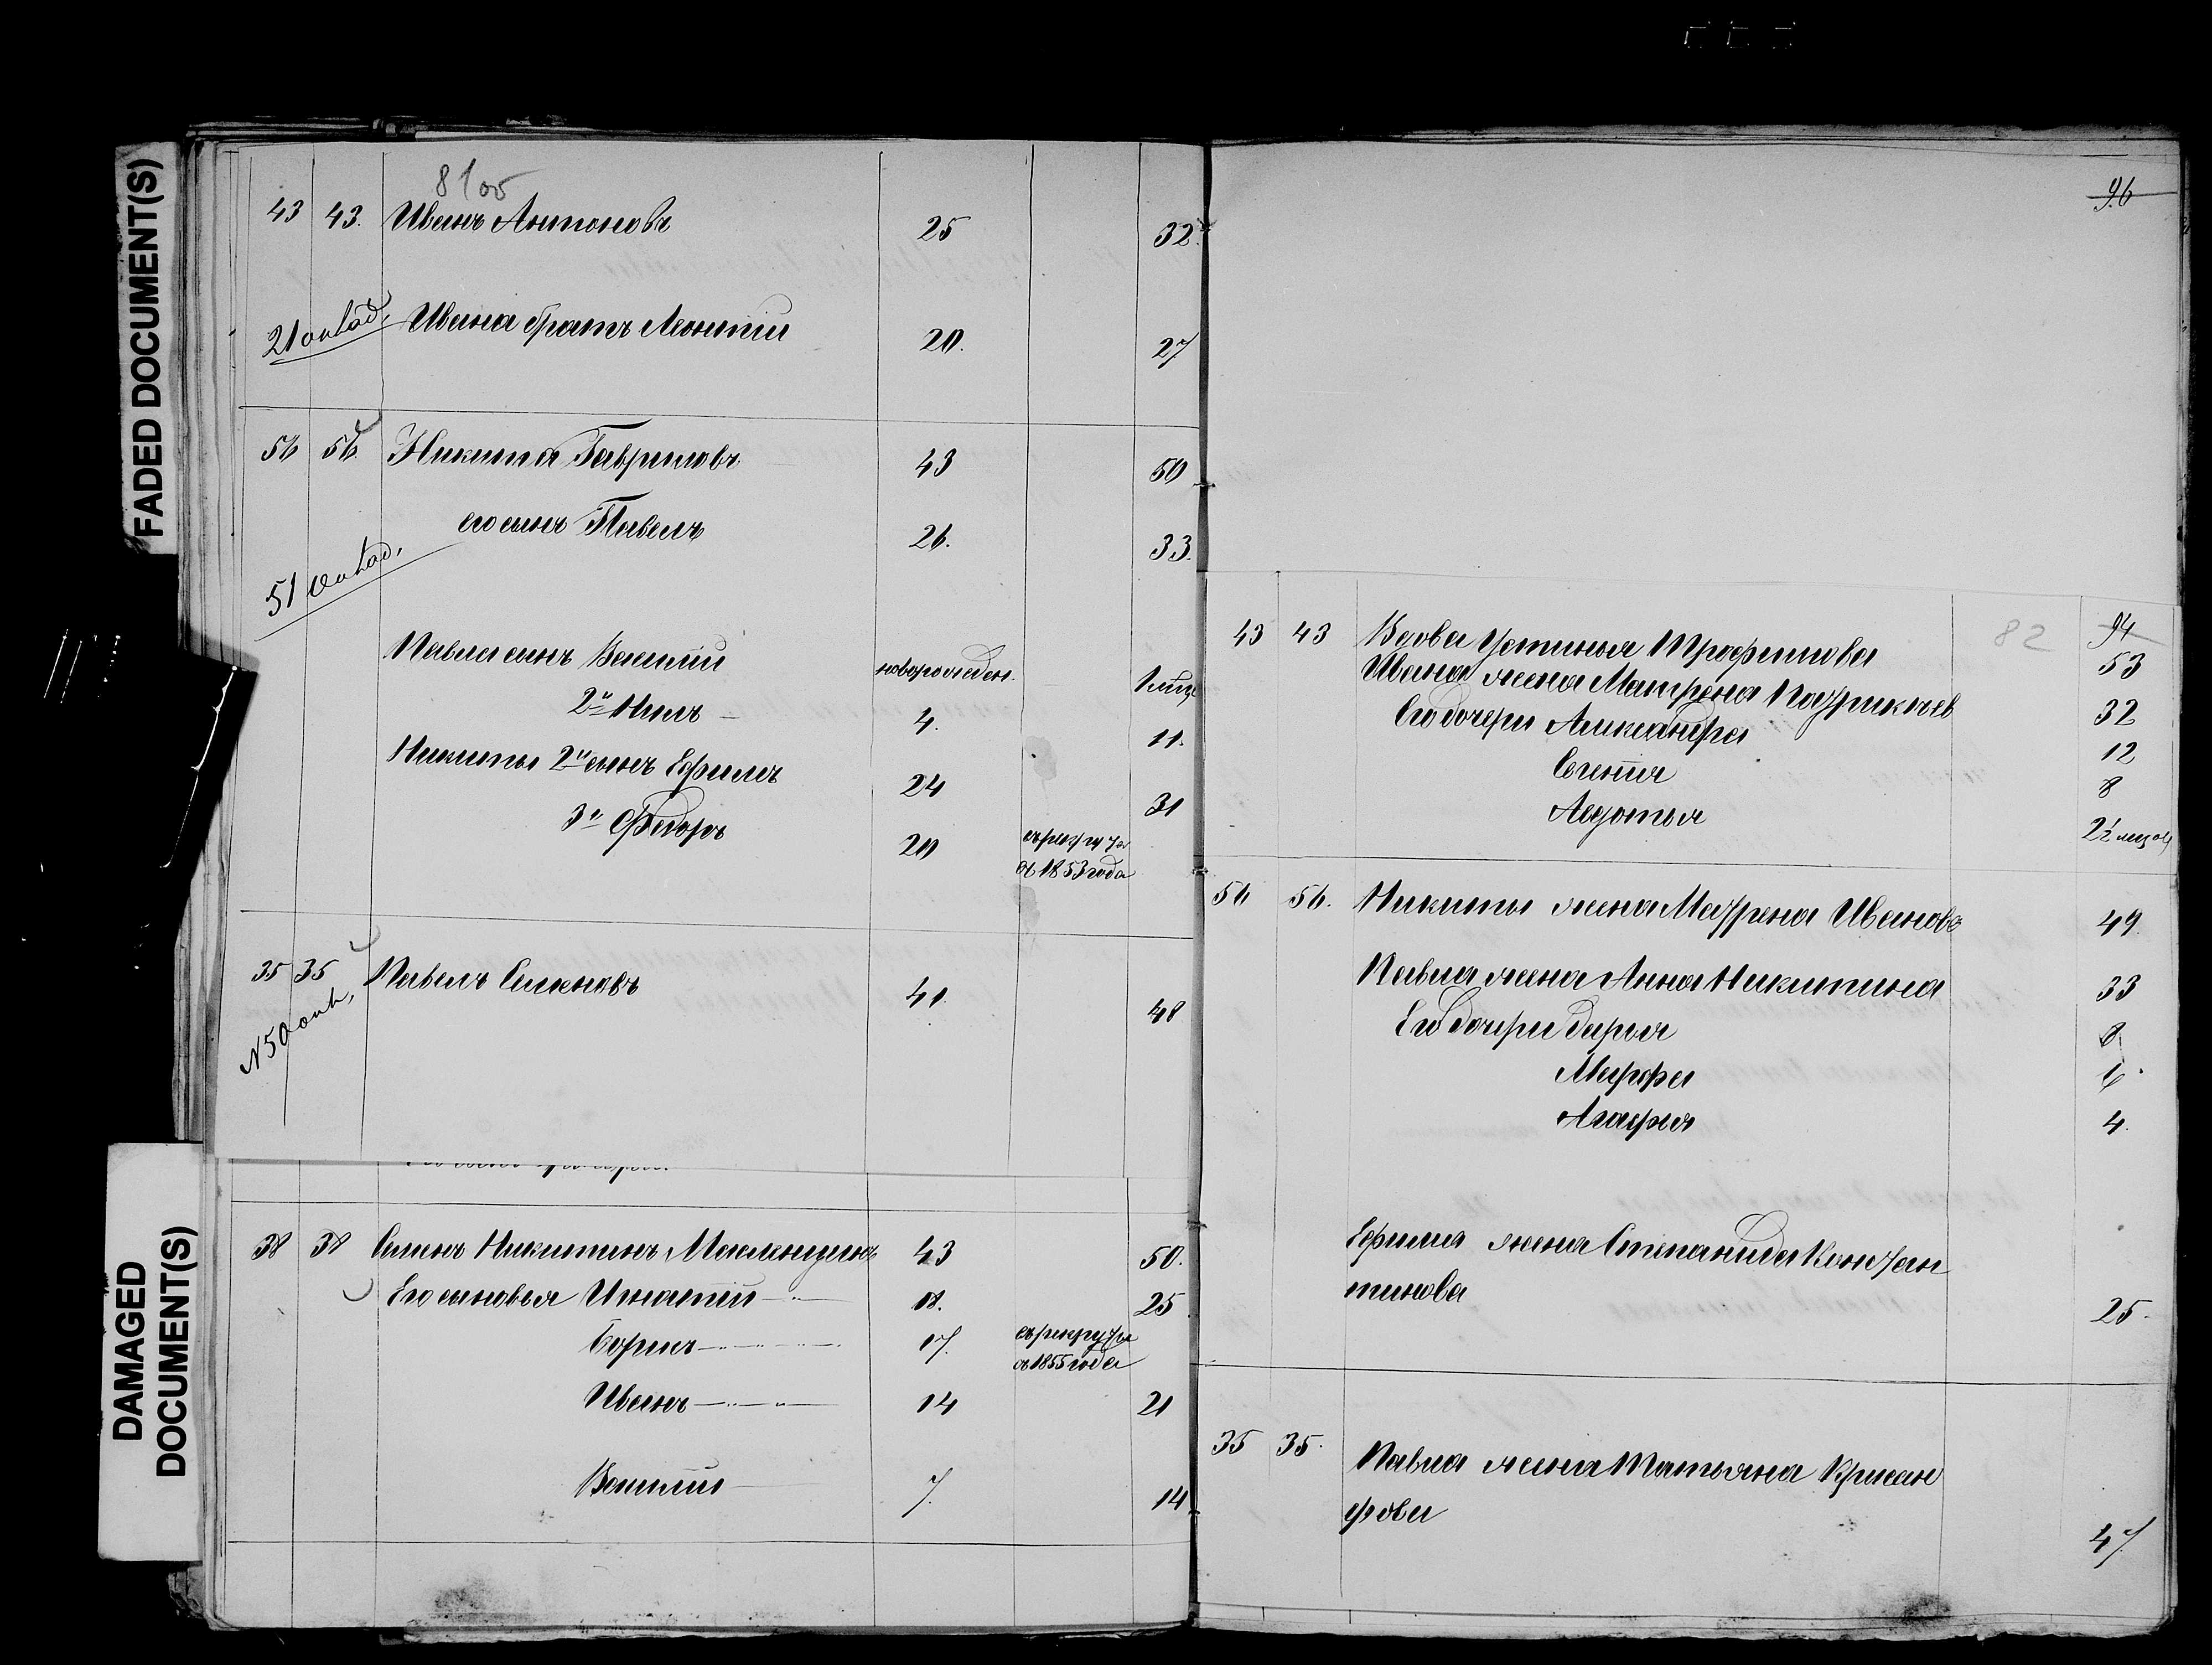 FADED DOCUMENT(S)
DAMAGED
DOCUMENT(S)
81 об
43 43. Иванъ Антоновъ 25 32.
21 оклад. Ивана братъ Леонтiй 20. 27
56 56 Никита Гавриловъ 43 50
его сынъ Павелъ 26. 33.
51 оклад.
Павла сынъ Василiй новорожден.
2й Нилъ 4. 11.
Никиты 2й сынъ Ефимъ 24 31
3й Федоръ 20 въ рекрута
въ 1853 года
35 35 Павелъ Семеновъ 41. 48
N 50 окл.
38 38 Семенъ Никитинъ Масленицинъ 43 50.
Его сыновья Игнатiй 18. 25
Борисъ 17. въ рекруты
въ 1855 года
Иванъ 14 21
Василiй 7. 14
96
43 43 Вдова Устинья Трофимова 82 94 53
Ивана жена Матрена Патрикѣев 32
Его дочери Александра 12
8
Авдотья 2½ мѣсяц
56 56. Никиты жена Матрена Иванова 49.
Павла жена Анна Никитина 33
Его дочери Дарья 8.
Марфа 6
Агафья 4.
Ефима жена Степанида Констан
тинова 25.
35 35. Павла жена Татьяна Крисан
фова 47.